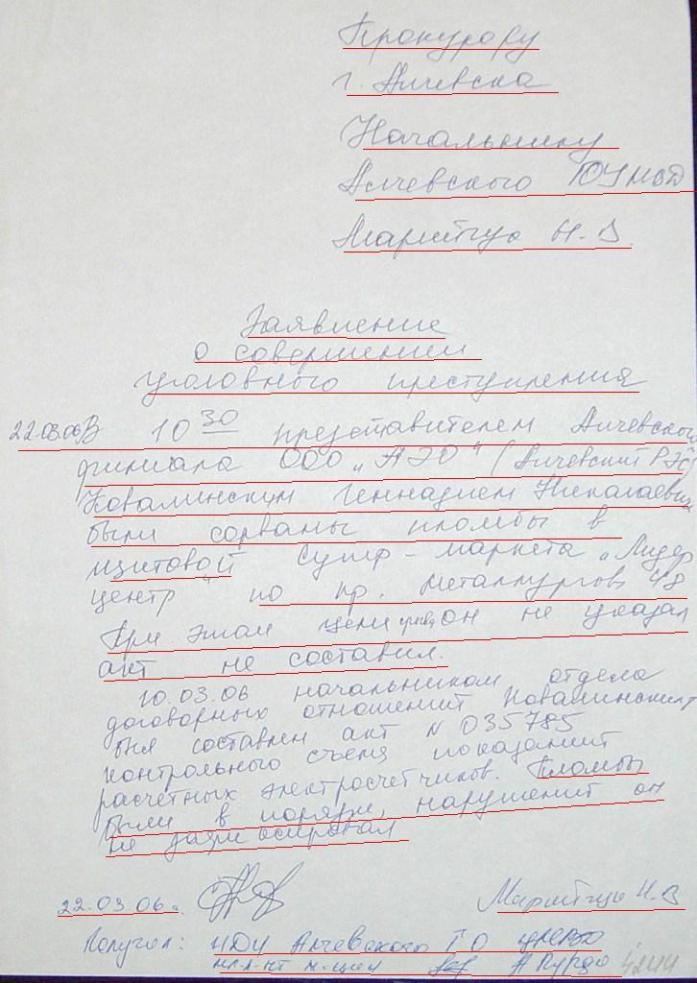 Прокурору
г. Алчевска
Начальнику
Алчевского ГОУМВД
Маритчус Н. В.
Заявление
о совершении
уголовного преступления
22.03.06 В 10 30 представителем Алчевского
филиала ООО „АЭО" (Алчевский РЭС)
Ковалинским Геннадием Николаевич
были сорваны пломбы в
щитовой Супер-маркета „Лидер
центр" по пр. Металлургов 48
При этом цели он не указал
акт не составил.
10.03.06 начальником отдела
договорных отношений Ковалинским
был составлен акт N 035785
контрольного съема показаний
расчетных электросчетчиков. Пломбы
были в порядке, нарушений он
не зафиксировал
22.03.06г. Н. В
Получил: Алчевского ГО
4244